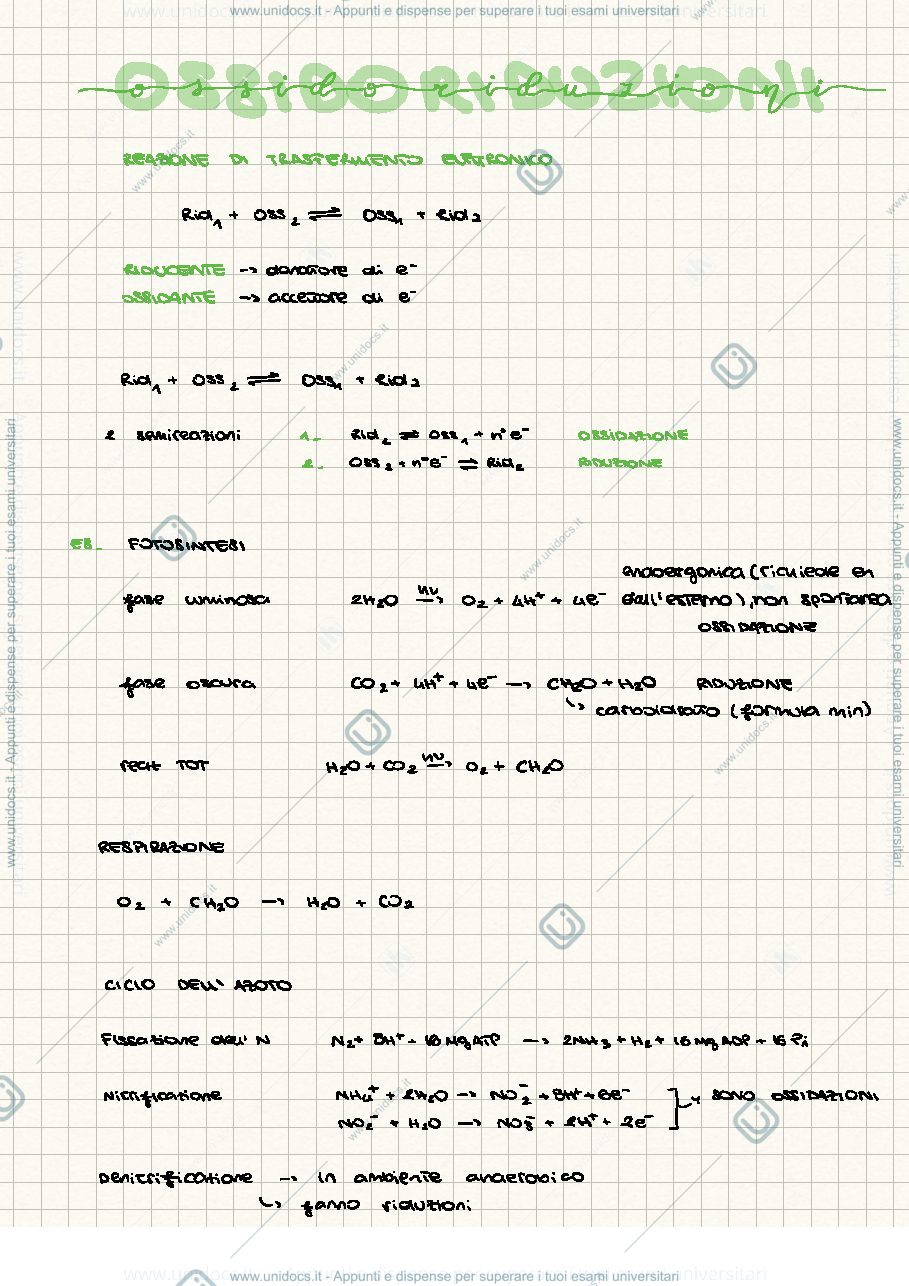 www.unidocs.it - Appunti e dispense per superare i tuoi esami universitari
OSSIDORIDUZIONI
ossidoriduzioni
REAZIONE DI TRASFERIMENTO ELETTRONICO
Rid₁ + OSS₂ ⇌ OSS₁ + Rid₂
RIDUCENTE -> donatore di e⁻
OSSIDANTE -> accettore di e⁻
Rid₁ + OSS₂ ⇌ OSS₁ + Rid₂
2 semireazioni 1. Rid₂ ⇌ OSS₁ + n°e⁻ OSSIDAZIONE
2. OSS₂ + n°e⁻ ⇌ Rid₂ RIDUZIONE
ES. FOTOSINTESI
endoergonica (richiede en
fase luminosa 2H₂O hν-> O₂ + 4H⁺ + 4e⁻ dall'esterno), non spontanea
OSSIDAZIONE
fase oscura CO₂ + 4H⁺ + 4e⁻ -> CH₂O + H₂O RIDUZIONE
↳ carboidrato (formula min)
reaz TOT H₂O + CO₂ hν-> O₂ + CH₂O
RESPIRAZIONE
O₂ + CH₂O -> H₂O + CO₂
CICLO DELL' AZOTO
Fissazione dell' N N₂ + 8H⁺ + 16 MgATP -> 2NH₃ + H₂ + 16 Mg ADP + 16 Pi
Nitrificazione NH₄⁺ + 2H₂O -> NO₂⁻ + 8H⁺ + 6e⁻ ] SONO OSSIDAZIONI
NO₂⁻ + H₂O -> NO₃⁻ + 2H⁺ + 2e⁻
Denitrificazione -> in ambiente anaerobico
↳ fanno riduzioni
www.unidocs.it - Appunti e dispense per superare i tuoi esami universitari